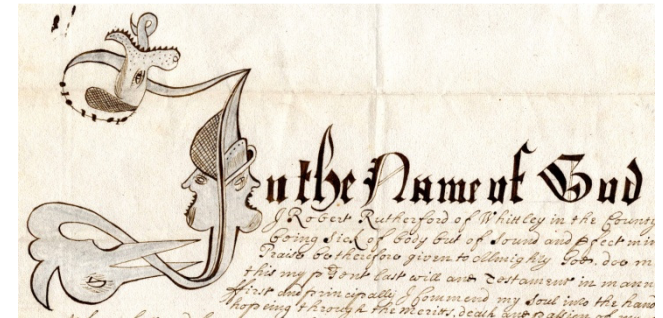 In the Name of God
I Robert Rutherford of Whittley in the County
being sick of body but of sound and pfect min
Praise be therefore given to Allmighty God. doe m
this my pdent last will and Testament in mann
ffirst and principally I Commend my Soul into the hand
hopeing through the meritts, death and passion of my